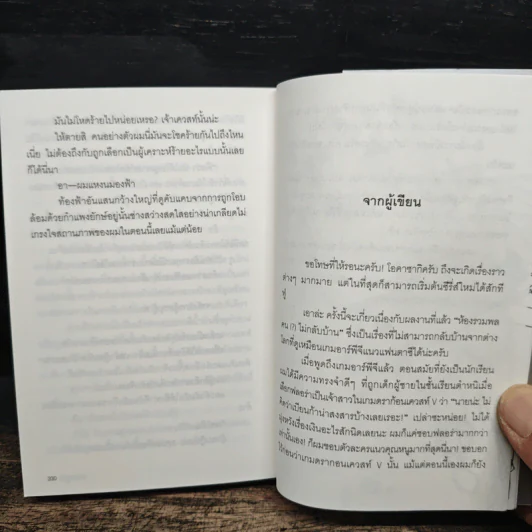 มันไม่โหดร้ายไปหน่อยเหรอ? เจ้าเควสท์นั้นน่ะ
ให้ตายสิ คนอย่างตัวผมนี่มันจะโชคร้ายกันไปถึงไหน
เนี่ย ไม่ต้องถึงกับถูกเลือกเป็นผู้เคราะห์ร้ายอะไรแบบนั้นเลย
ก็ได้นี่นา
อา—ผมแหงนมองฟ้า
ท้องฟ้าอันแสนกว้างใหญ่ที่ดูคับแคบจากการถูกโอบ
ล้อมด้วยกำแพงยักษ์อยู่นั้นช่างสว่างสดใสอย่างน่าเกลียดไม่
เกรงใจสถานภาพของผมในตอนนี้เลยแม้แต่น้อย
จากผู้เขียน
ขอโทษที่ให้รอนะครับ! โอคาซากิครับ ถึงจะเกิดเรื่องราว
ต่างๆ มากมาย แต่ในที่สุดก็สามารถเริ่มต้นซีรี่ส์ใหม่ได้สักที
ฟู่
เอาล่ะ ครั้งนี้จะเกี่ยวเนื่องกับผลงานที่แล้ว "ห้องรวมพล
คน (?) ไม่กลับบ้าน" ซึ่งเป็นเรื่องที่ไม่สามารถกลับบ้านจากต่าง
โลกที่ดูเหมือนเกมอาร์พีจีแนวแฟนตาซีได้น่ะครับ
เมื่อพูดถึงเกมอาร์พีจีแล้ว ตอนสมัยที่ยังเป็นนักเรียน
ผมได้มีความทรงจำดีๆ ที่ถูกเด็กผู้ชายในชั้นเรียนตำหนิเมื่อ
เลือกฟลอร่าเป็นเจ้าสาวในเกมดราก้อนเควสท์ V ว่า "นายน่ะ ไม่
คิดว่าเบียนก้าน่าสงสารบ้างเลยเรอะ!" เปล่าซะหน่อย! ไม่ได้
มุ่งหวังเรื่องเงินอะไรสักนิดเลยนะ ผมก็แค่ชอบฟลอร่ามากกว่า
เท่านั้นเอง! ก็ผมชอบตัวละครแนวคุณหนูมากที่สุดนี่นา! ขอบอก
ไว้ก่อนว่าเกมดราก้อนเควสท์ V นั้น แม้แต่ตอนนี้เองผมก็ยัง